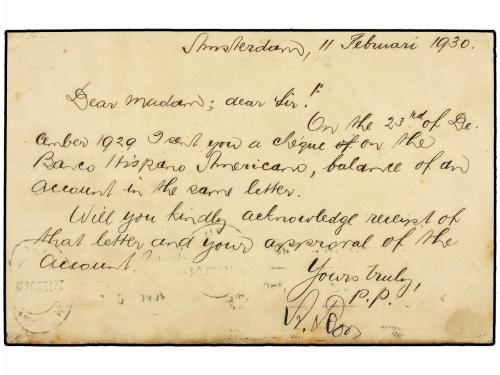 Amsterdam, 11 Februari 1930.
Dear Madam; dear Sir!
On the 23rd of De-
cember 1929 I sent you a chèque of on the
Banco Hispano Americano, balance of an
account in the same letter.
Will you kindly acknowledge receipt of
that letter and your approval of the
account?
Yours truly,
P.P.